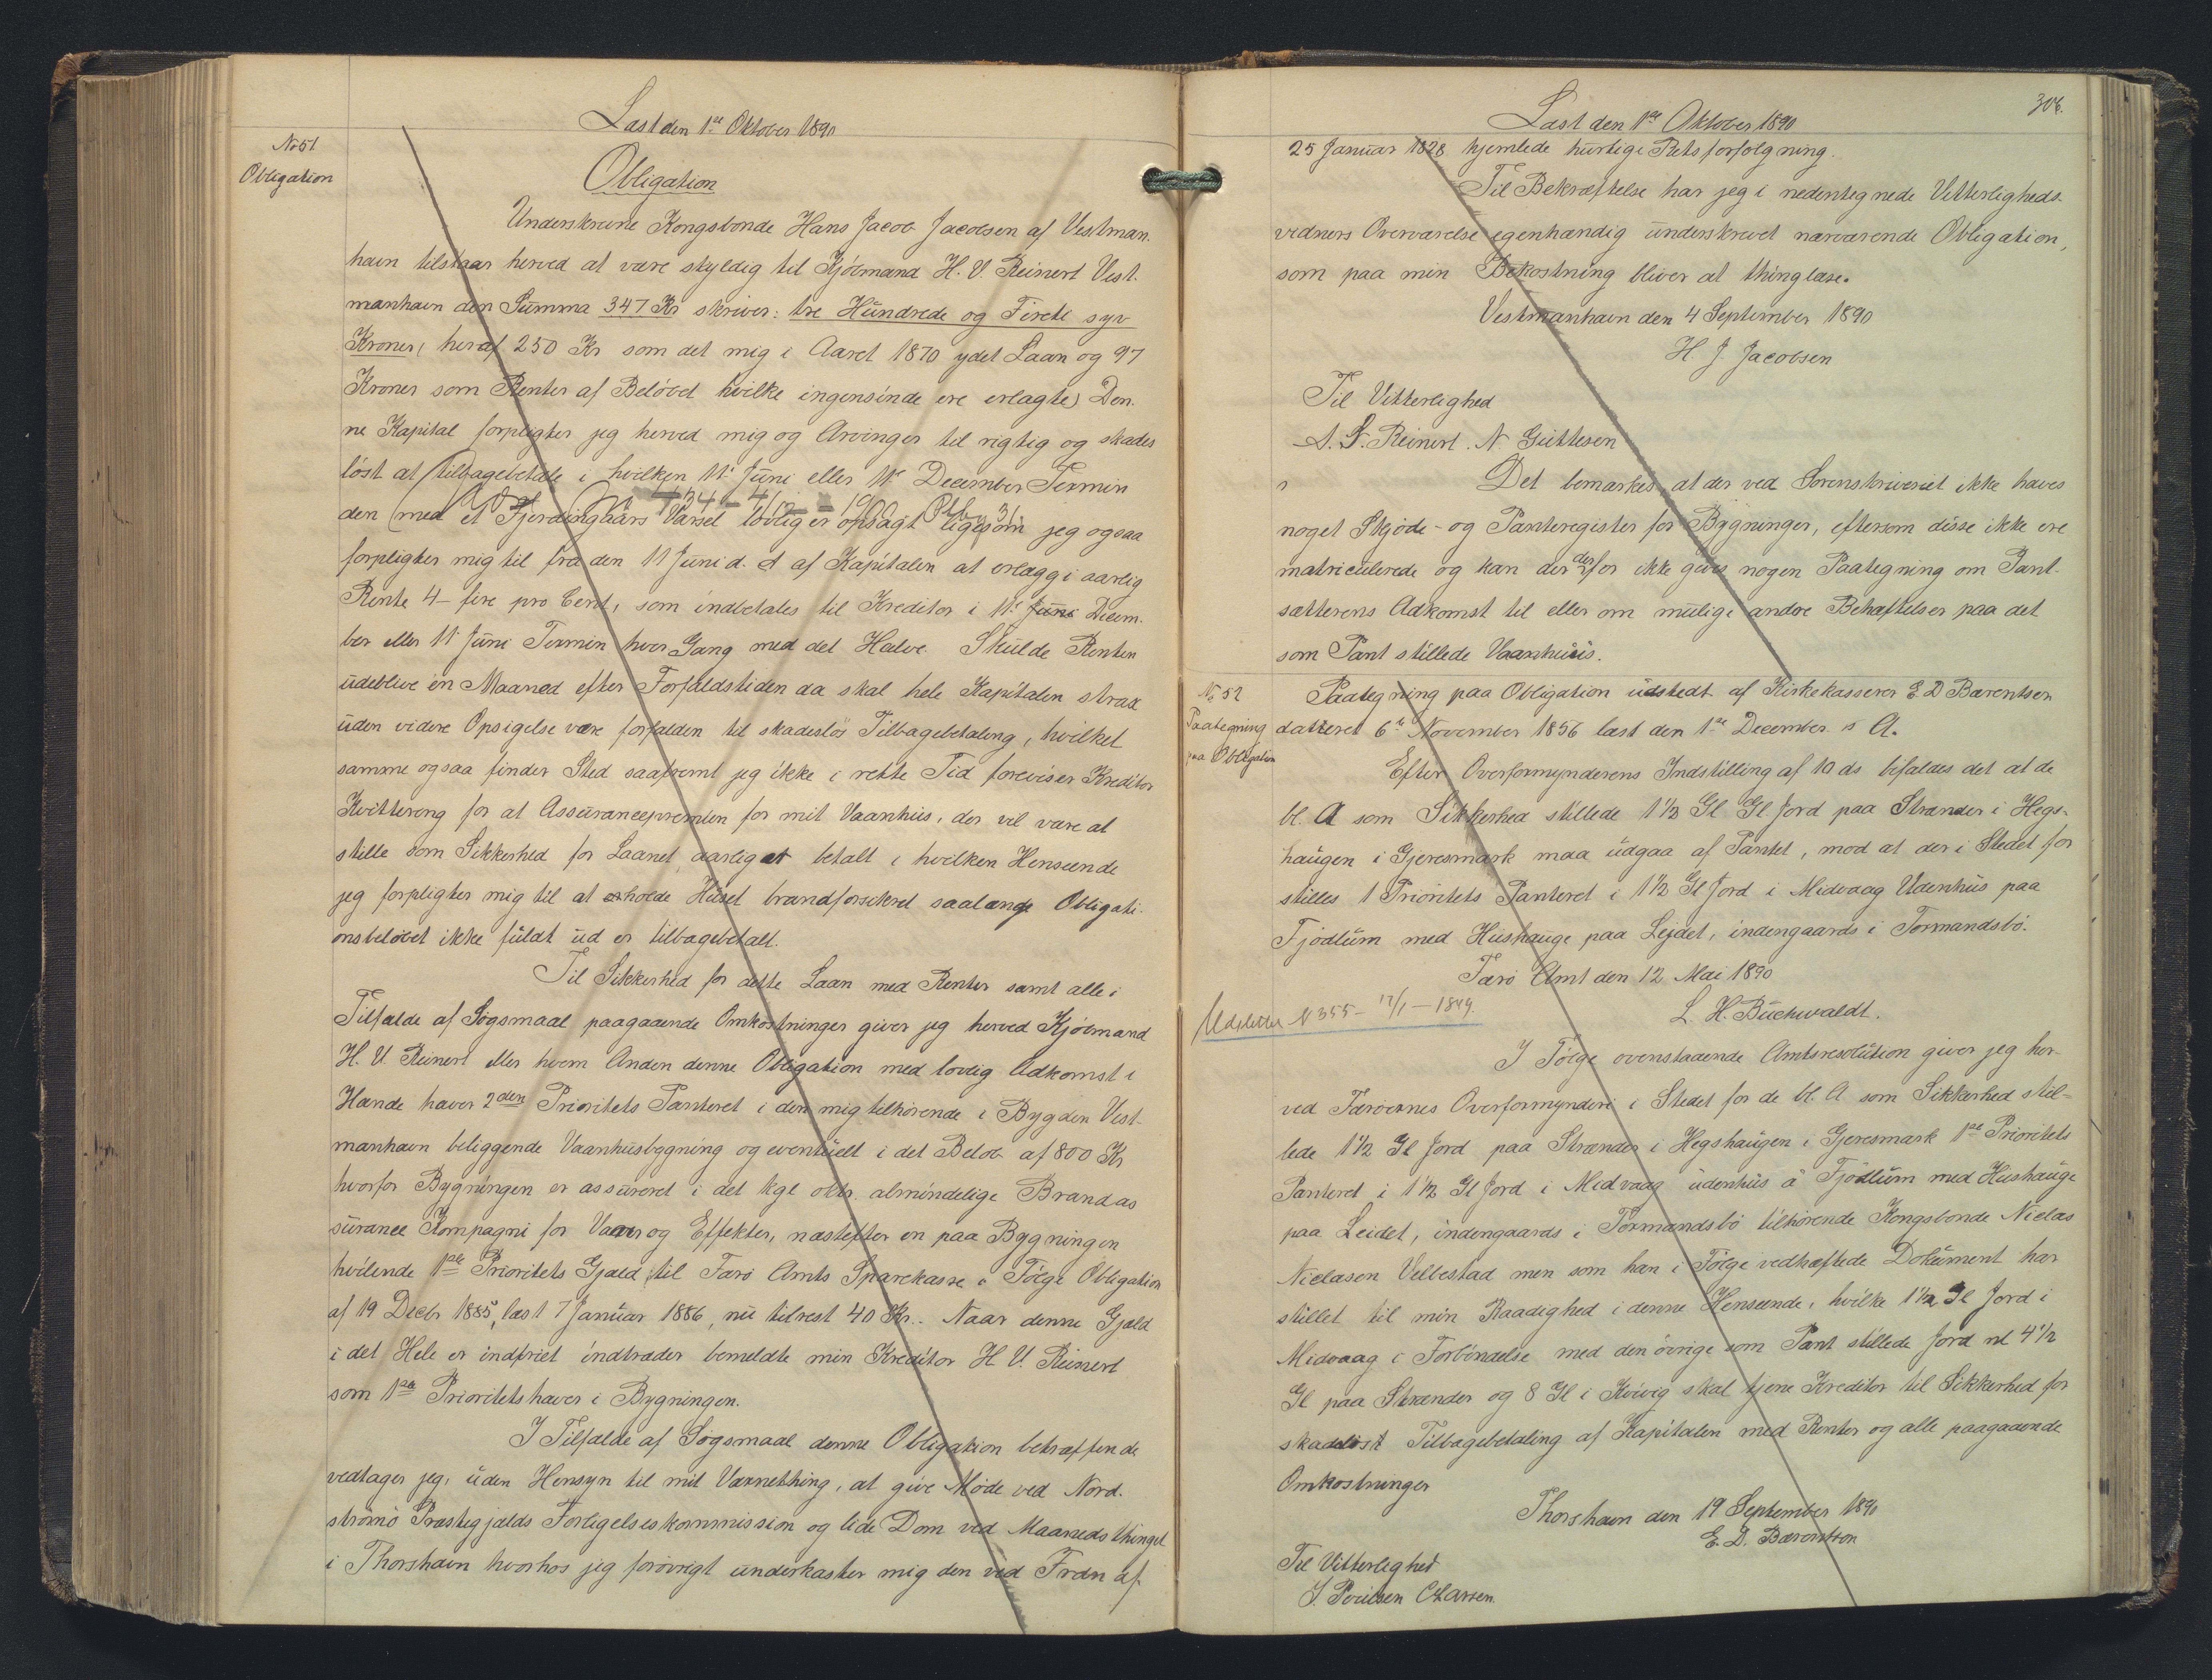 Læst den 1ste Oktober 1890
No 51
Obligation
Obligation
Underskrevne Kongsbonde Hans Jacob Jacobsen af Vestman-
havn tilstaar herved at være skyldig til Kjöbmand H. V. Reinert Vest-
manhavn den Summa 347 Kr skriver: tre Hundrede og Fireti syv
Kroner, heraf 250 Kr som det mig i Aaret 1870 ydet Laan og 97
Kroner som Renter af Belöbet hvilke ingensinde ere erlagte) Den-
ne Kapital forpligter jeg herved mig og Arvinger til rigtig og skades
löst at tilbagebetale i hvilken 11te Juni eller 11te December Termin
den med et Fjerdingaars Varsel lovlig er opsagt ligesom jeg ogsaa
forpligter mig til fra den 11 Juni d. A af Kapitalen at erlægge aarlig
Rente 4 - fire pro Cent, som indbetales til Kreditor i 11te Juni Decem-
ber eller 11 Juni Termin hver Gang med det Halve. Skulde Renten
udeblive en Maaned efter Forfaldstiden da skal hele Kapitalen strax
uden videre Opsigelse være forfalden til skadeslös Tilbagebetaling, hvilket
samme ogsaa finder Sted saafremt jeg ikke i rette Tid foreviser Kreditor
Kvittering for at Assurancepræmien for mit Vaanhus, der vil være at
stille som Sikkerhed for Laanet aarlig er betalt i hvilken Henseende
jeg forpligter mig til at holde Huset brandforsikret saalænge Obligati-
onsbelöbet ikke fuldt ud er tilbagebetalt.
Til Sikkerhed for dette Laan med Renter samt alle i
Tilfælde af Sögsmaal paagaaende Omkostninger giver jeg herved Kjöbmand
H. V. Reinert eller hvem Anden denne Obligation med lovlig Adkomst i
Hænde haver 2den Prioritets Panteret i den mig tilhörende i Bygden Vest-
manhavn beliggende Vaanhusbygning og eventuelt i det Belöb af 800 Kr
hvorfor Bygningen er assureret i det kgl oktr. almindelige Brandas
surance Kompagni for Varer og Effekter, næstefter en paa Bygningen
hvilende 1ste Prioritets Gjæld til Færö Amts Sparekasse i Fölge Obligation
af 19 Decbr 1885, læst 7 Januar 1886, nu tilrest 40 Kr.. Naar denne Gjæld
i det Hele er indfriet indtræder bemeldte min Kreditor H. V. Reinert
som 1ste Prioritetshaver i Bygningen.
I Tilfælde af Sögsmaal denne Obligation betræffende
vedtager jeg, uden Hensyn til mit Værnething, at give Möde ved Nord-
strömö Præstegjælds Forligelseskommission og lide Dom ved Maanedsthinget
i Thorshavn hvorhos jeg forövrigt underkaster mig den ved Frdn af
306.
Læst den 1ste Oktober 1890
25 Januar 1828 hjemlede hurtige Retsforfölgning.
Til Bekræftelse har jeg i nedentegnede Vitterligheds-
vidners Overværelse egenhændig underskrevet nærværende Obligation,
som paa min Bekostning bliver at thinglæse.
Vestmanhavn den 4 September 1890
H J Jacobsen
Til Vitterlighed
Reinert. N Guttesen
Det bemærkes, at der ved Sorenskriveriet ikke haves
noget Skjöde- og Panteregister for Bygninger, eftersom disse ikke ere
matriculerede og kan der derfor ikke gives nogen Paategning om Pant-
sætterens Adkomst til eller om mulige andre Behæftelser paa det
som Pant stillede Vaanhuis.
No 52
Paategning
paa Obligation
Paategning paa Obligation udstedt af Kirkekasserer E D Bærentsen
dateret 6te November 1856 læst den 1ste December s A.
Efter Overformynderens Indstilling af 10 ds bifaldes det at de
bl. A som Sikkerhed stillede 1 1/2 Gl Gl Jord paa Strænder i Hegs-
haugen i Gjeresmark maa udgaa af Pantet, mod at der i Stedet for
stilles 1 Prioritets Panteret i 1 1/2 Gl Jord i Midvaag Udenhus paa
Fjödlum med Hushauge paa Lejdet, indengaards i Tormandsbö.
Færö Amt den 12 Mai 1890
L. H. Buchwaldt.
Udslettet N 355 - 12/1 - 1899.
I Fölge ovenstaaende Amtsresolution giver jeg her-
ved Færöernes Overformynderi i Stedet for de bl. A som Sikkerhed stil-
lede 1 1/2 Gl Jord paa Strænder i Hegshaugen i Gjeresmark 1ste Prioritets
Panteret i 1 1/2 Gl Jord i Midvaag udenhus á Fjödlum med Hushauge
paa Leidet, indengaards i Tormandsbö tilhörende Kongsbonde Niclas
Niclasen Velbestad men som han i Fölge vedhæftede Dokument har
stillet til min Raadighed i denne Henseende, hvilke 1 1/2 Gl Jord i
Midvaag i Forbindelse med den övrige som Pant stillede Jord nl 4 1/2
Gl paa Strænder og 8 Gl i Kvivig skal tjene Kreditor til Sikkerhed for
skadeslöst Tilbagebetaling af Kapitalen med Renter og alle paagaaende
Omkostninger
Thorshavn den 19 September 1890
E. D. Bærentsen
Til Vitterlighed
J. Poulsen CLarsen.